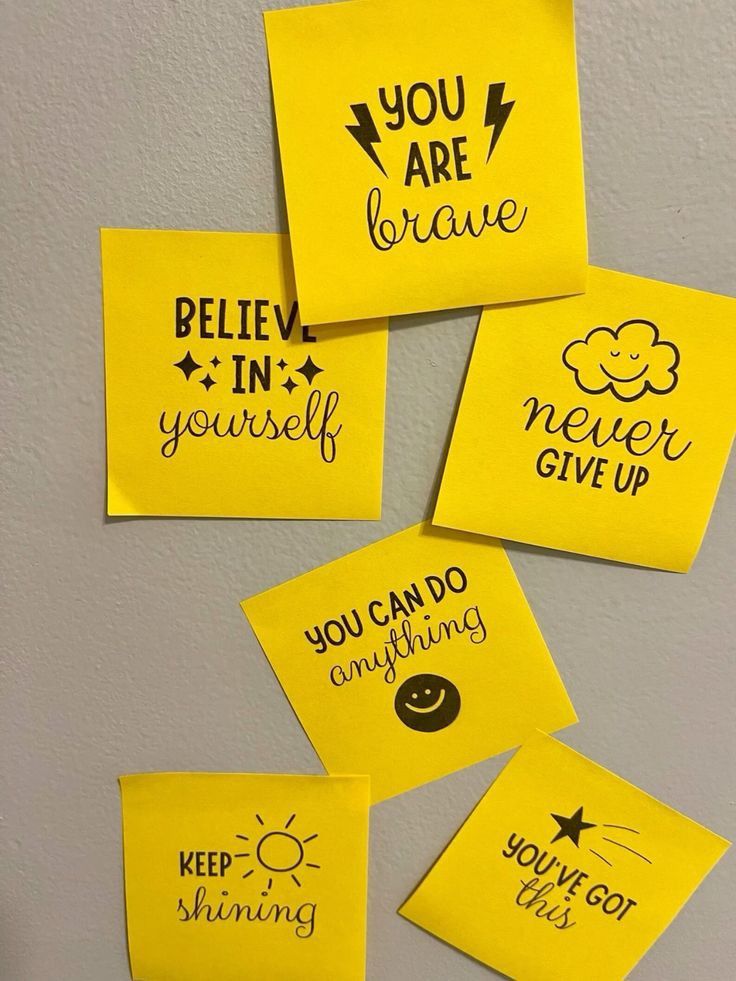 YOU
ARE
brave
BELIEVE
IN
yourself
never
GIVE UP
YOU CAN DO
anything
KEEP
shining
YOU'VE GOT
this